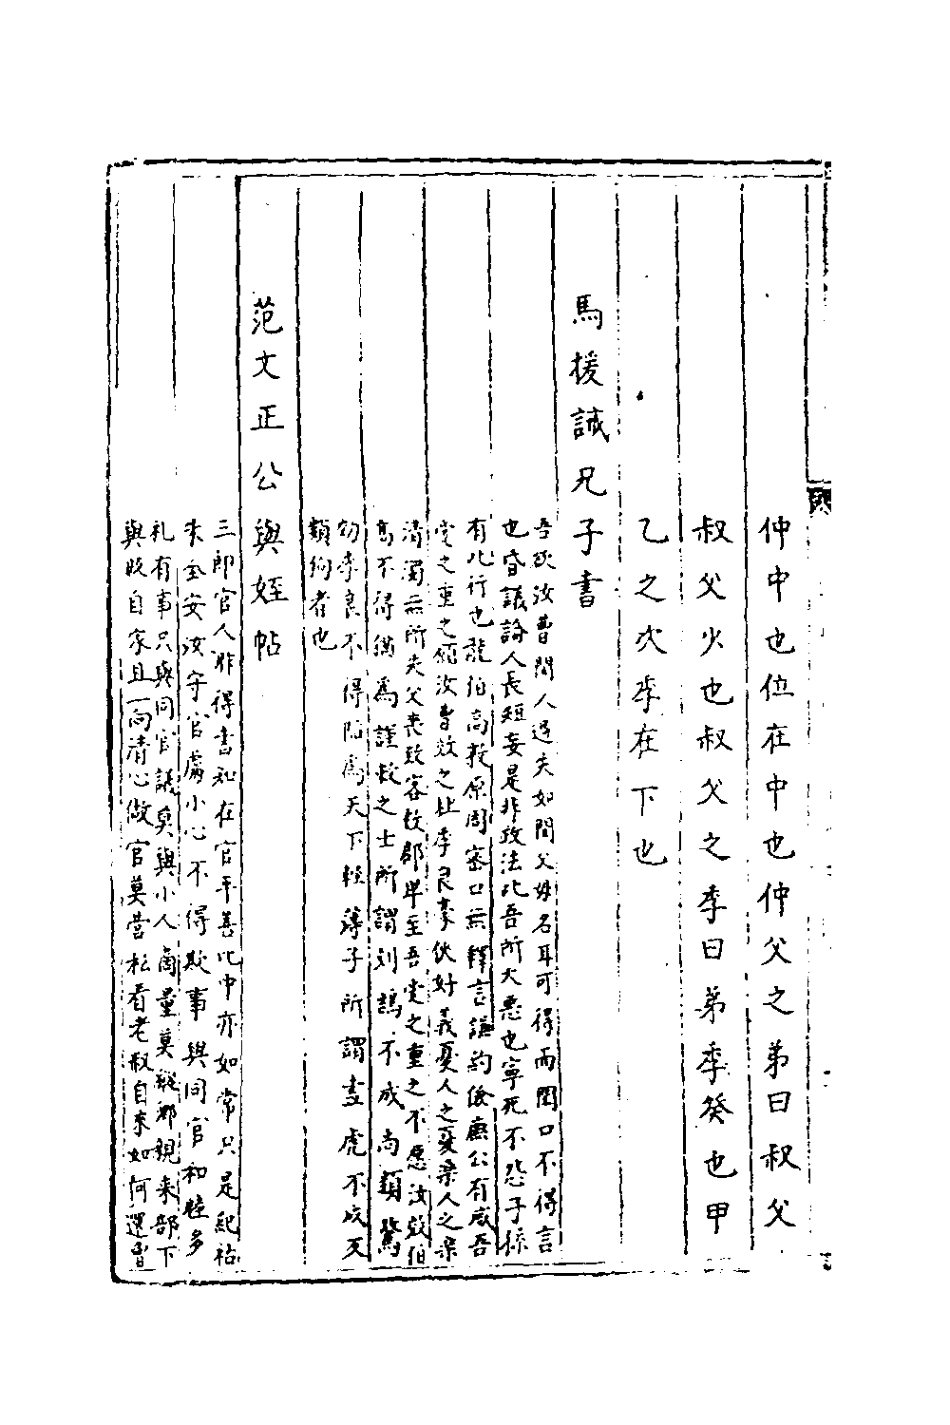 仲中也位在中也仲父之弟曰叔父
叔父少也叔父之季曰弟季癸也甲
乙之次季在下也
馬援誡兄子書
吾欲汝曹聞人過失如聞父母名耳可得而聞口不得言
也昏議論人長短妄是非政法此吾所大惡也寧死不怨子孫
有此行也龍伯高敦厚周密口無釋言謙約儉廉公有威吾
愛之重之願汝曹效之杜季良豪俠好義憂人之憂樂人之樂
清濁無所失父喪致客數郡畢至吾愛之重之不愿汝效伯
高不得猶為謹敕之士所謂刻鵠不成尚類鶩
効季良不得陷為天下輕薄子所謂畫虎不成反
類狗者也
范文正公與姪帖
三郎官人昨得書知在官平善此中亦如常只是純祐
未全安汝守官處小心不得欺事與同官和睦多
礼有事只與同官議莫與小人商量莫縱鄉親來部下
與販自家且一向清心做官莫營私看老叔自来如何還曾